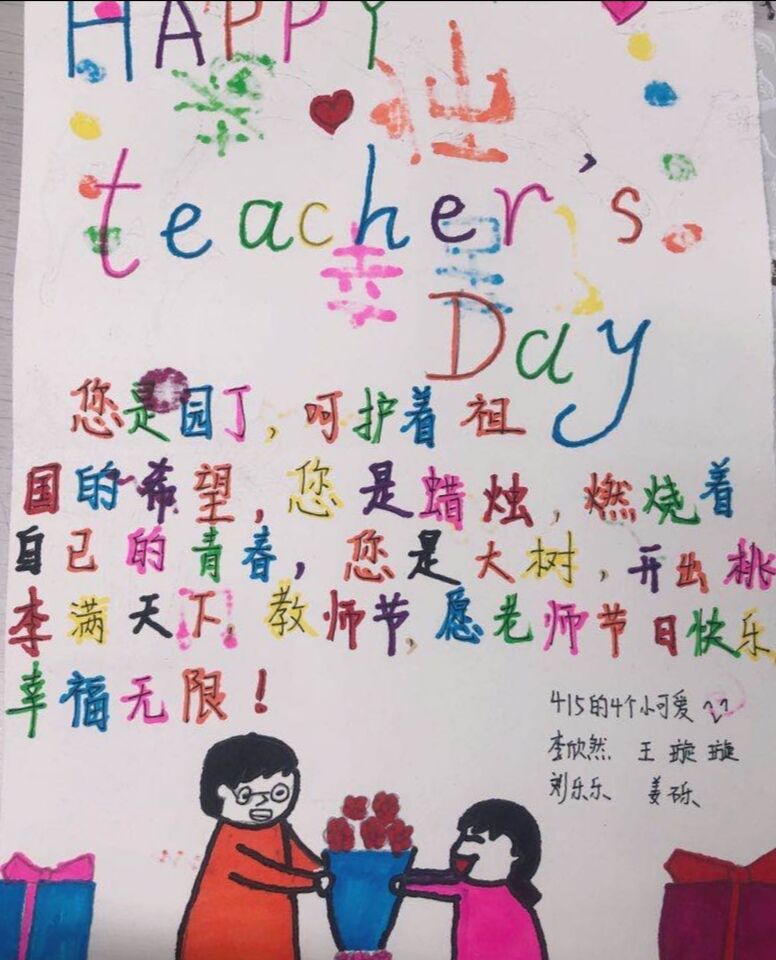 HAPPY
teacher's
Day
您是园丁,呵护着祖
国的希望,您是蜡烛,燃烧着
自己的青春,您是大树,开出桃
李满天下,教师节,愿老师节日快乐
幸福无限!
415的4个小可爱
李欣然 王璇璇
刘乐乐 姜砾